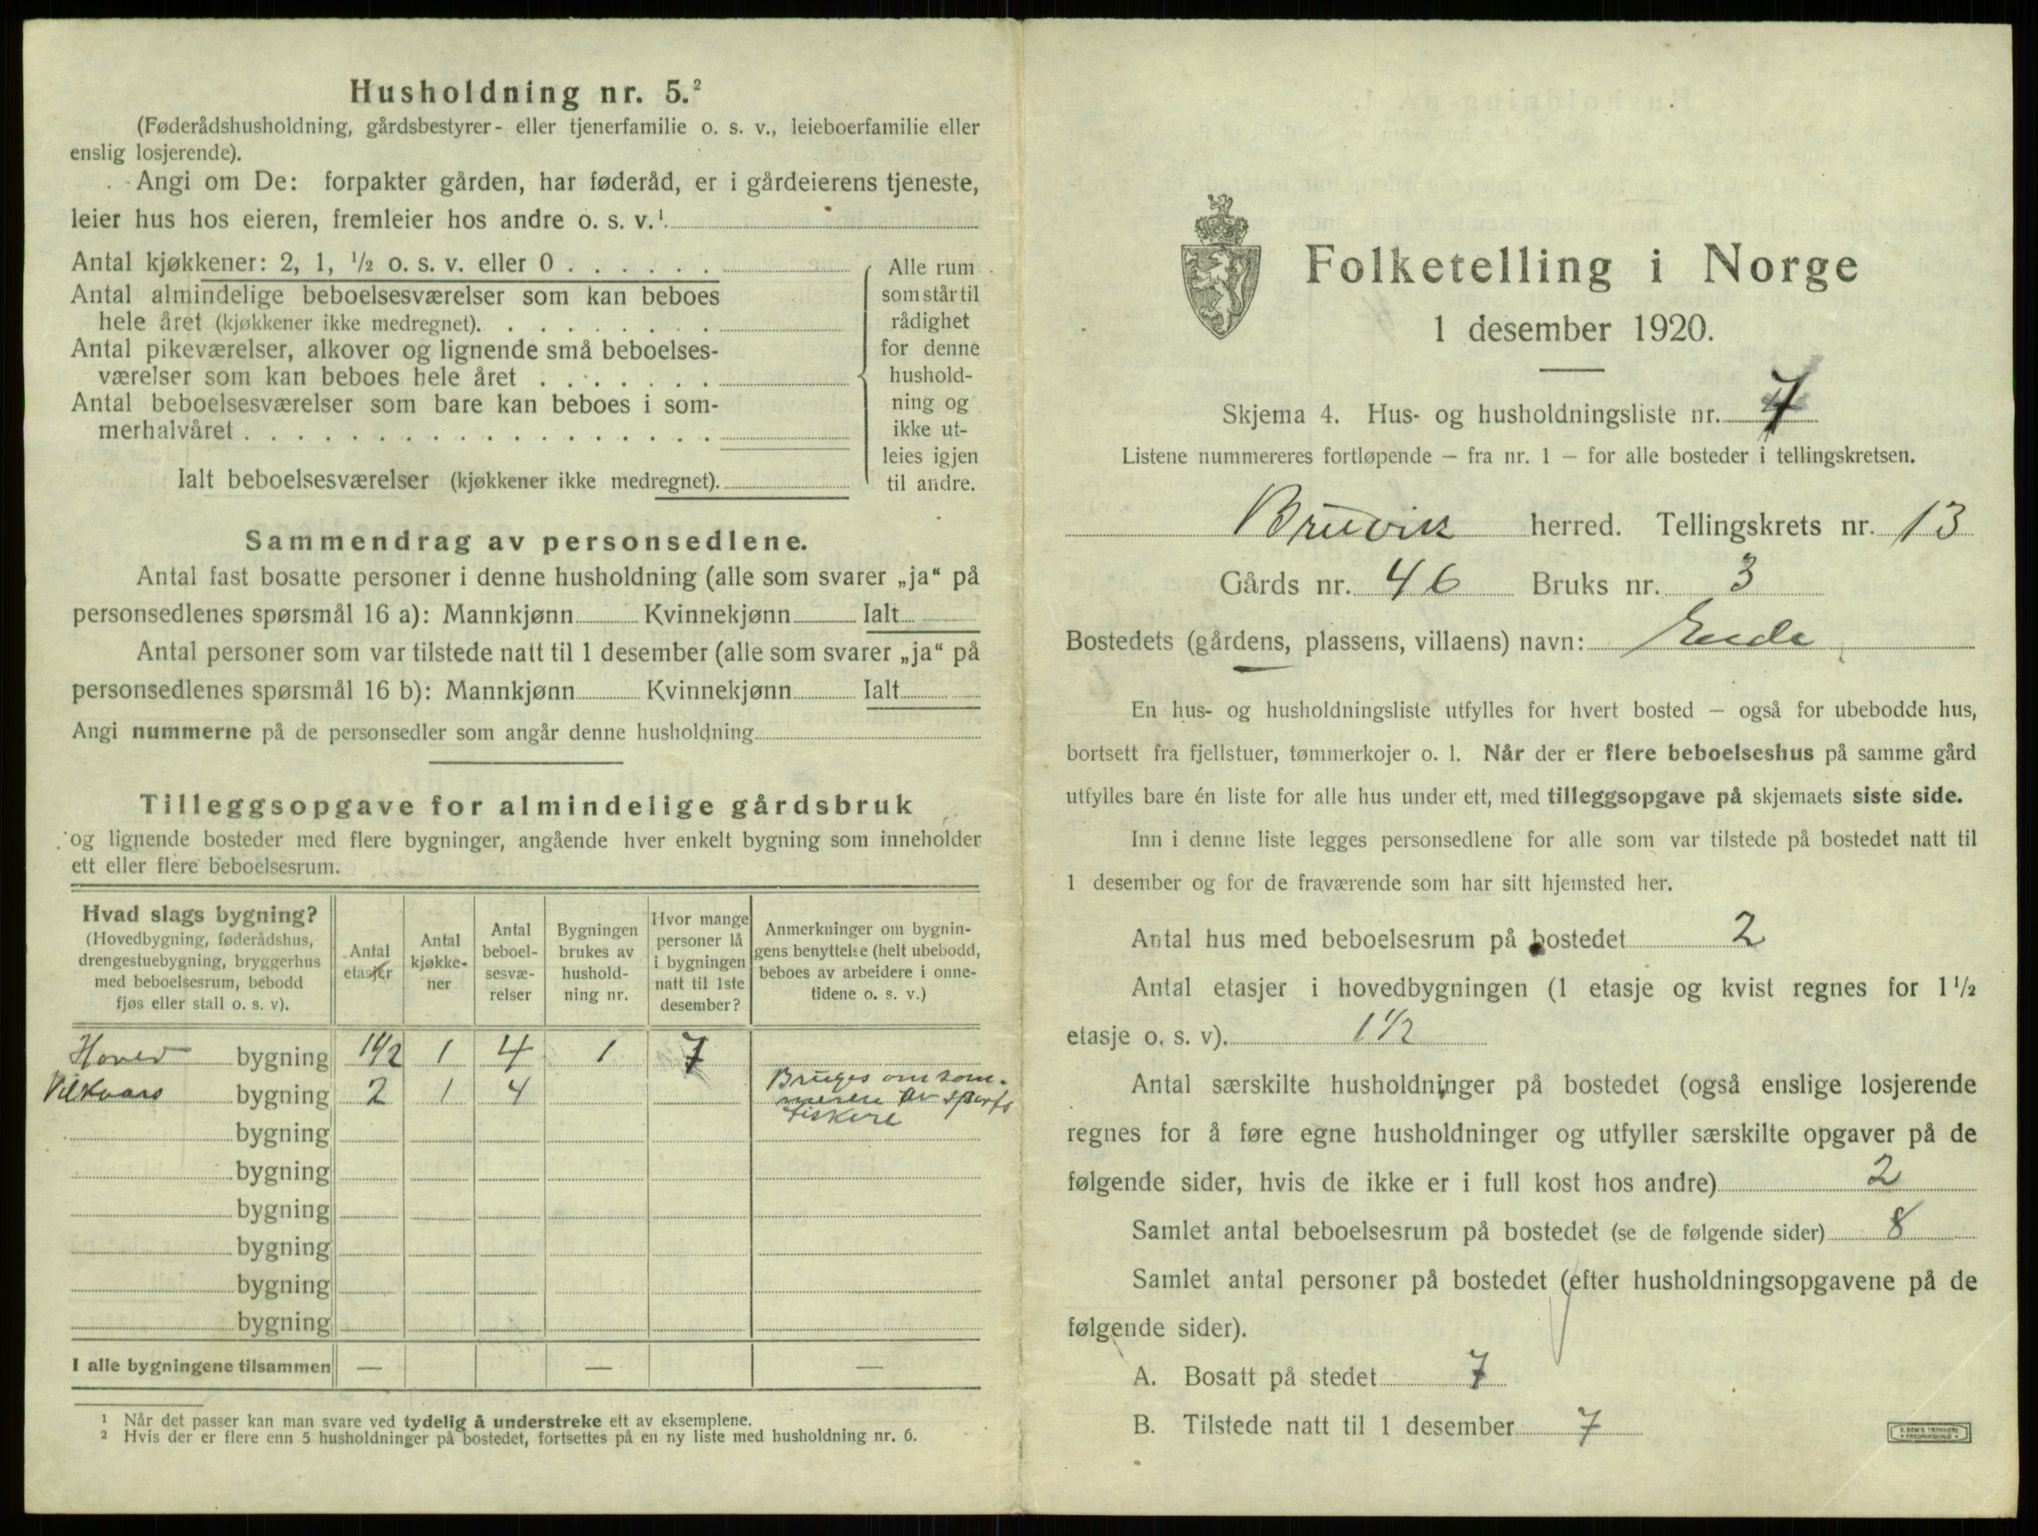 Husholdning nr. 5.²
(Føderådshusholdning, gårdsbestyrer- eller tjenerfamilie o. s. v., leieboerfamilie eller
enslig losjerende).
Angi om De: forpakter gården, har føderåd, er i gårdeierens tjeneste,
leier hus hos eieren, fremleier hos andre o. s. v.¹
Antal kjøkkener: 2, 1, ½ o. s. v. eller 0 . . . . . .
Antal almindelige beboelsesværelser som kan beboes
hele året (kjøkkener ikke medregnet). . . . . . . . .
Antal pikeværelser, alkover og lignende små beboelses-
værelser som kan beboes hele året . . . . . . .
Antal beboelsesværelser som bare kan beboes i som-
merhalvåret . . . . . . . . . . . . . . . . . .
Ialt beboelsesværelser (kjøkkener ikke medregnet).
Alle rum
som står til
rådighet
for denne
hushold-
ning og
ikke ut-
leies igjen
til andre.
Sammendrag av personsedlene.
Antal fast bosatte personer i denne husholdning (alle som svarer „ja“ på
personsedlenes spørsmål 16 a): Mannkjønn Kvinnekjønn Ialt
Antal personer som var tilstede natt til 1 desember (alle som svarer „ja“ på
personsedlenes spørsmål 16 b): Mannkjønn Kvinnekjønn Ialt
Angi nummerne på de personsedler som angår denne husholdning
Tilleggsopgave for almindelige gårdsbruk
og lignende bosteder med flere bygninger, angående hver enkelt bygning som inneholder
ett eller flere beboelsesrum.
Hvad slags bygning?
(Hovedbygning, føderådshus,
drengestuebygning, bryggerhus
med beboelsesrum, bebodd
fjøs eller stall o. s. v).
Antal
etasjer
Antal
kjøkke-
ner
Antal
beboel-
sesvæ-
relser
Bygningen
brukes av
hushold-
ning nr.
Hvor mange
personer lå
i bygningen
natt til 1ste
desember?
Anmerkninger om bygnin-
gens benyttelse (helt ubebodd,
beboes av arbeidere i onne-
tidene o. s. v.)
Hoved bygning 1½ 1 4 1 7
Vilkaars bygning 2 1 4 Bruges om som-
meren av sports
fiskere
bygning
bygning
bygning
bygning
bygning
bygning
I alle bygningene tilsammen — — —
¹ Når det passer kan man svare ved tydelig å understreke ett av eksemplene.
² Hvis der er flere enn 5 husholdninger på bostedet, fortsettes på en ny liste med husholdning nr. 6.
Folketelling i Norge
1 desember 1920.
Skjema 4. Hus- og husholdningsliste nr. 7
Listene nummereres fortløpende — fra nr. 1 — for alle bosteder i tellingskretsen.
Bruvik herred. Tellingskrets nr. 13
Gårds nr. 46 Bruks nr. 3
Bostedets (gårdens, plassens, villaens) navn: Eide
En hus- og husholdningsliste utfylles for hvert bosted — også for ubebodde hus,
bortsett fra fjellstuer, tømmerkojer o. l. Når der er flere beboelseshus på samme gård
utfylles bare én liste for alle hus under ett, med tilleggsopgave på skjemaets siste side.
Inn i denne liste legges personsedlene for alle som var tilstede på bostedet natt til
1 desember og for de fraværende som har sitt hjemsted her.
Antal hus med beboelsesrum på bostedet 2
Antal etasjer i hovedbygningen (1 etasje og kvist regnes for 1½
etasje o. s. v). 1½
Antal særskilte husholdninger på bostedet (også enslige losjerende
regnes for å føre egne husholdninger og utfyller særskilte opgaver på de
følgende sider, hvis de ikke er i full kost hos andre) 2
Samlet antal beboelsesrum på bostedet (se de følgende sider) 8
Samlet antal personer på bostedet (efter husholdningsopgavene på de
følgende sider).
A. Bosatt på stedet 7
B. Tilstede natt til 1 desember 7
E. SEM'S TRYKKERI
FREDRIKSHALD